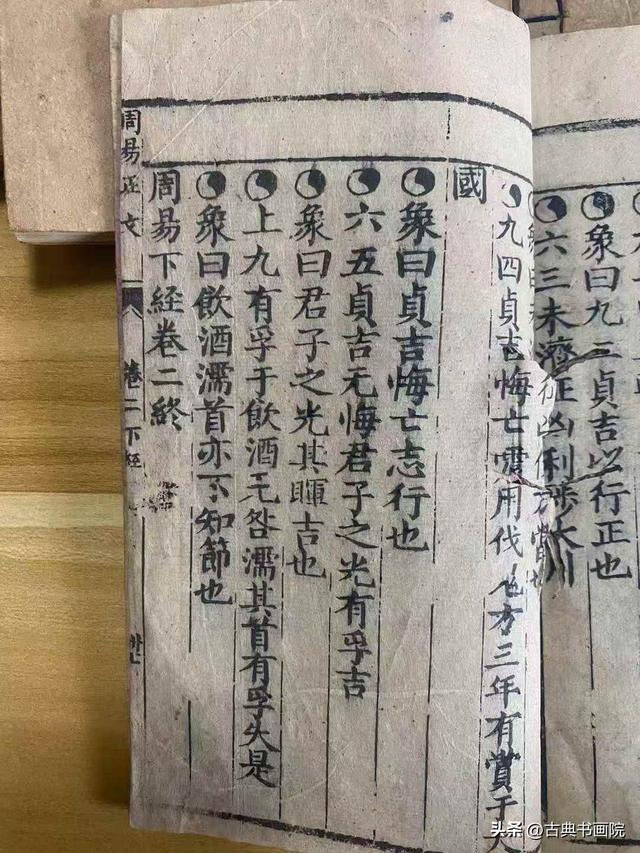 象曰九三貞吉以行正也
六三未濟征凶利涉大川
九四貞吉悔亡震用伐鬼方三年有賞于大
國
象曰貞吉悔亡志行也
六五貞吉无悔君子之光有孚吉
象曰君子之光其暉吉也
上九有孚于飲酒无咎濡其首有孚失是
象曰飲酒濡首亦不知節也
周易下經卷二終
周易正文
卷二下經
头条 @古典书画院